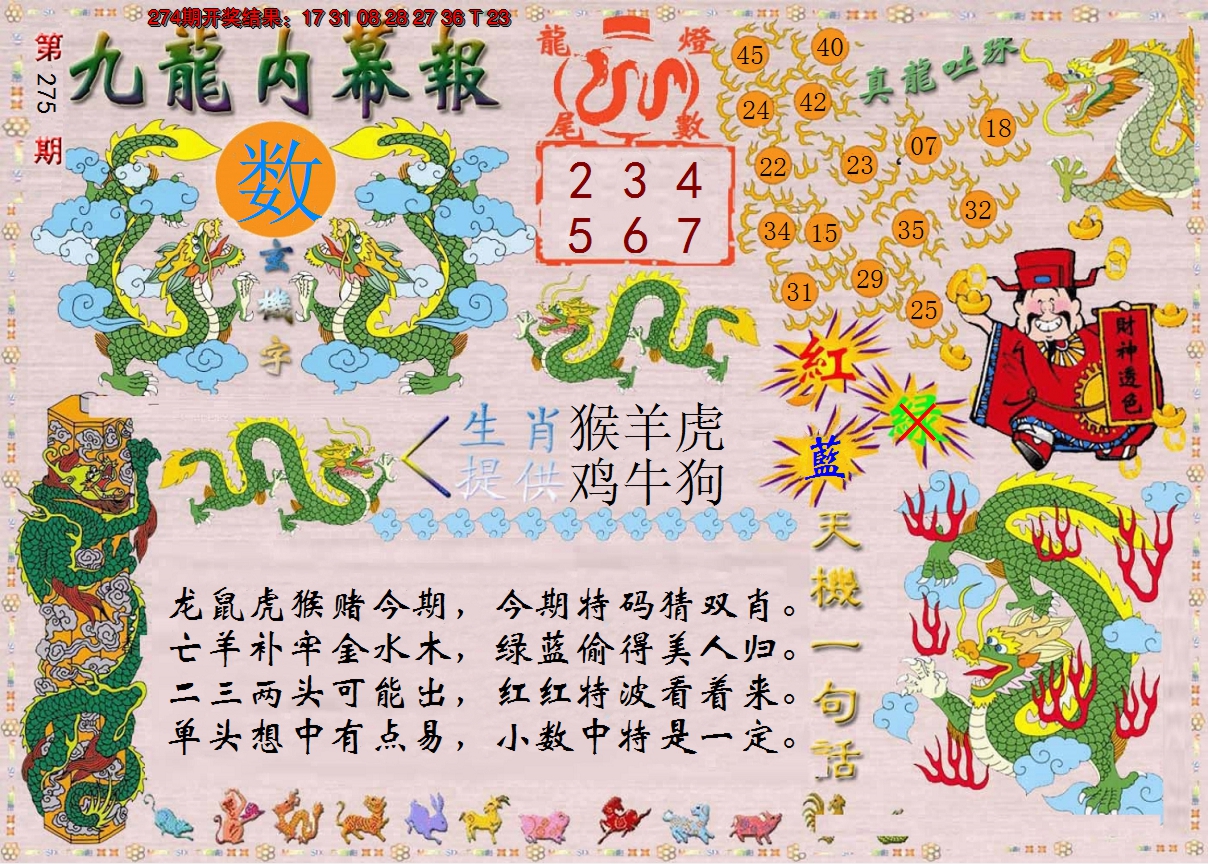 274期开奖结果：17 31 08 28 27 36 T 23
第275期
九龍内幕報
龍燈
尾數
2 3 4
5 6 7
真龍吐珠
45
40
24
42
07
18
22
23
32
34
15
35
29
31
25
数
玄機字
財神透色
紅
绿
藍
生肖 猴羊虎
提供 鸡牛狗
天機一句話
龙鼠虎猴赌今期，今期特码猜双肖。
亡羊补牢金水木，绿蓝偷得美人归。
二三两头可能出，红红特波看着来。
单头想中有点易，小数中特是一定。